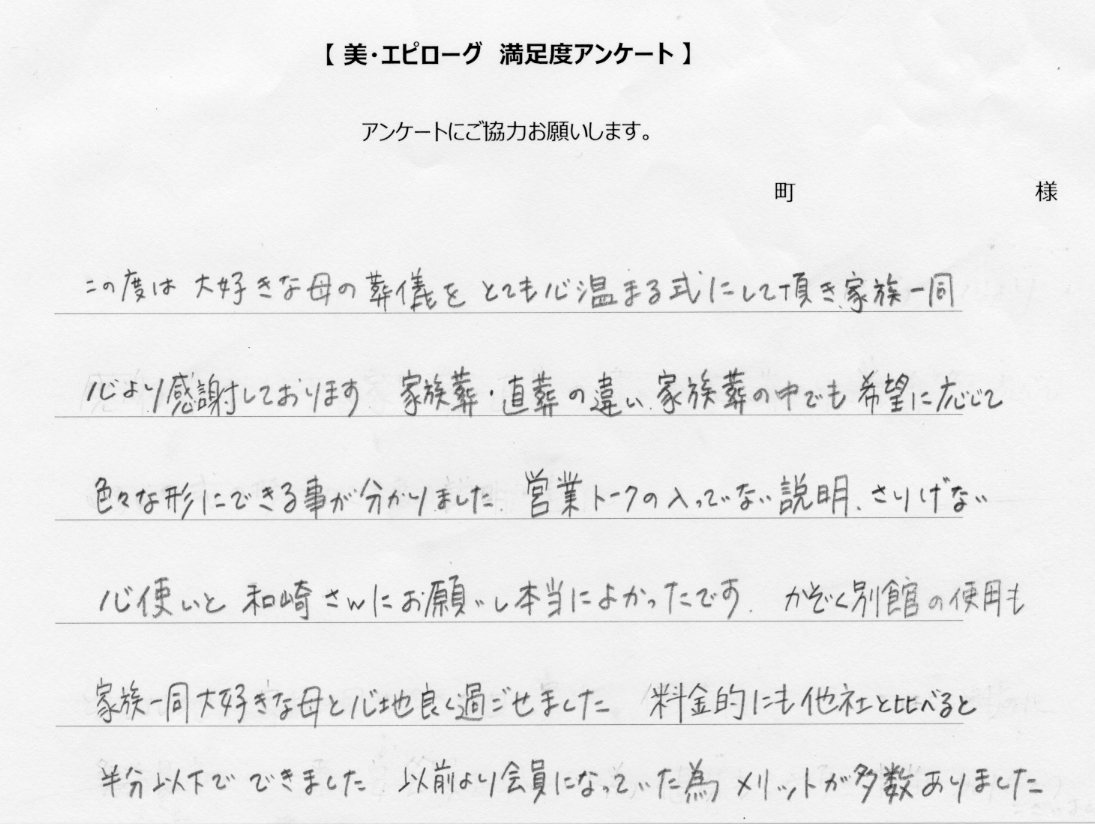 【 美・エピローグ 満足度アンケート 】
アンケートにご協力お願いします。
町 様
この度は 大好きな母の葬儀を とても心温まる式にして頂き、家族一同
心より感謝しております 家族葬・直葬の違い、家族葬の中でも希望に応じて
色々な形にできる事が分かりました。営業トークの入っていない説明、さりげない
心使いと 和崎さんにお願いし本当によかったです。かぞく別館の使用も
家族一同大好きな母と心地良く過ごせました 料金的にも他社と比べると
半分以下で できました 以前より会員になっていた為 メリットが多数ありました